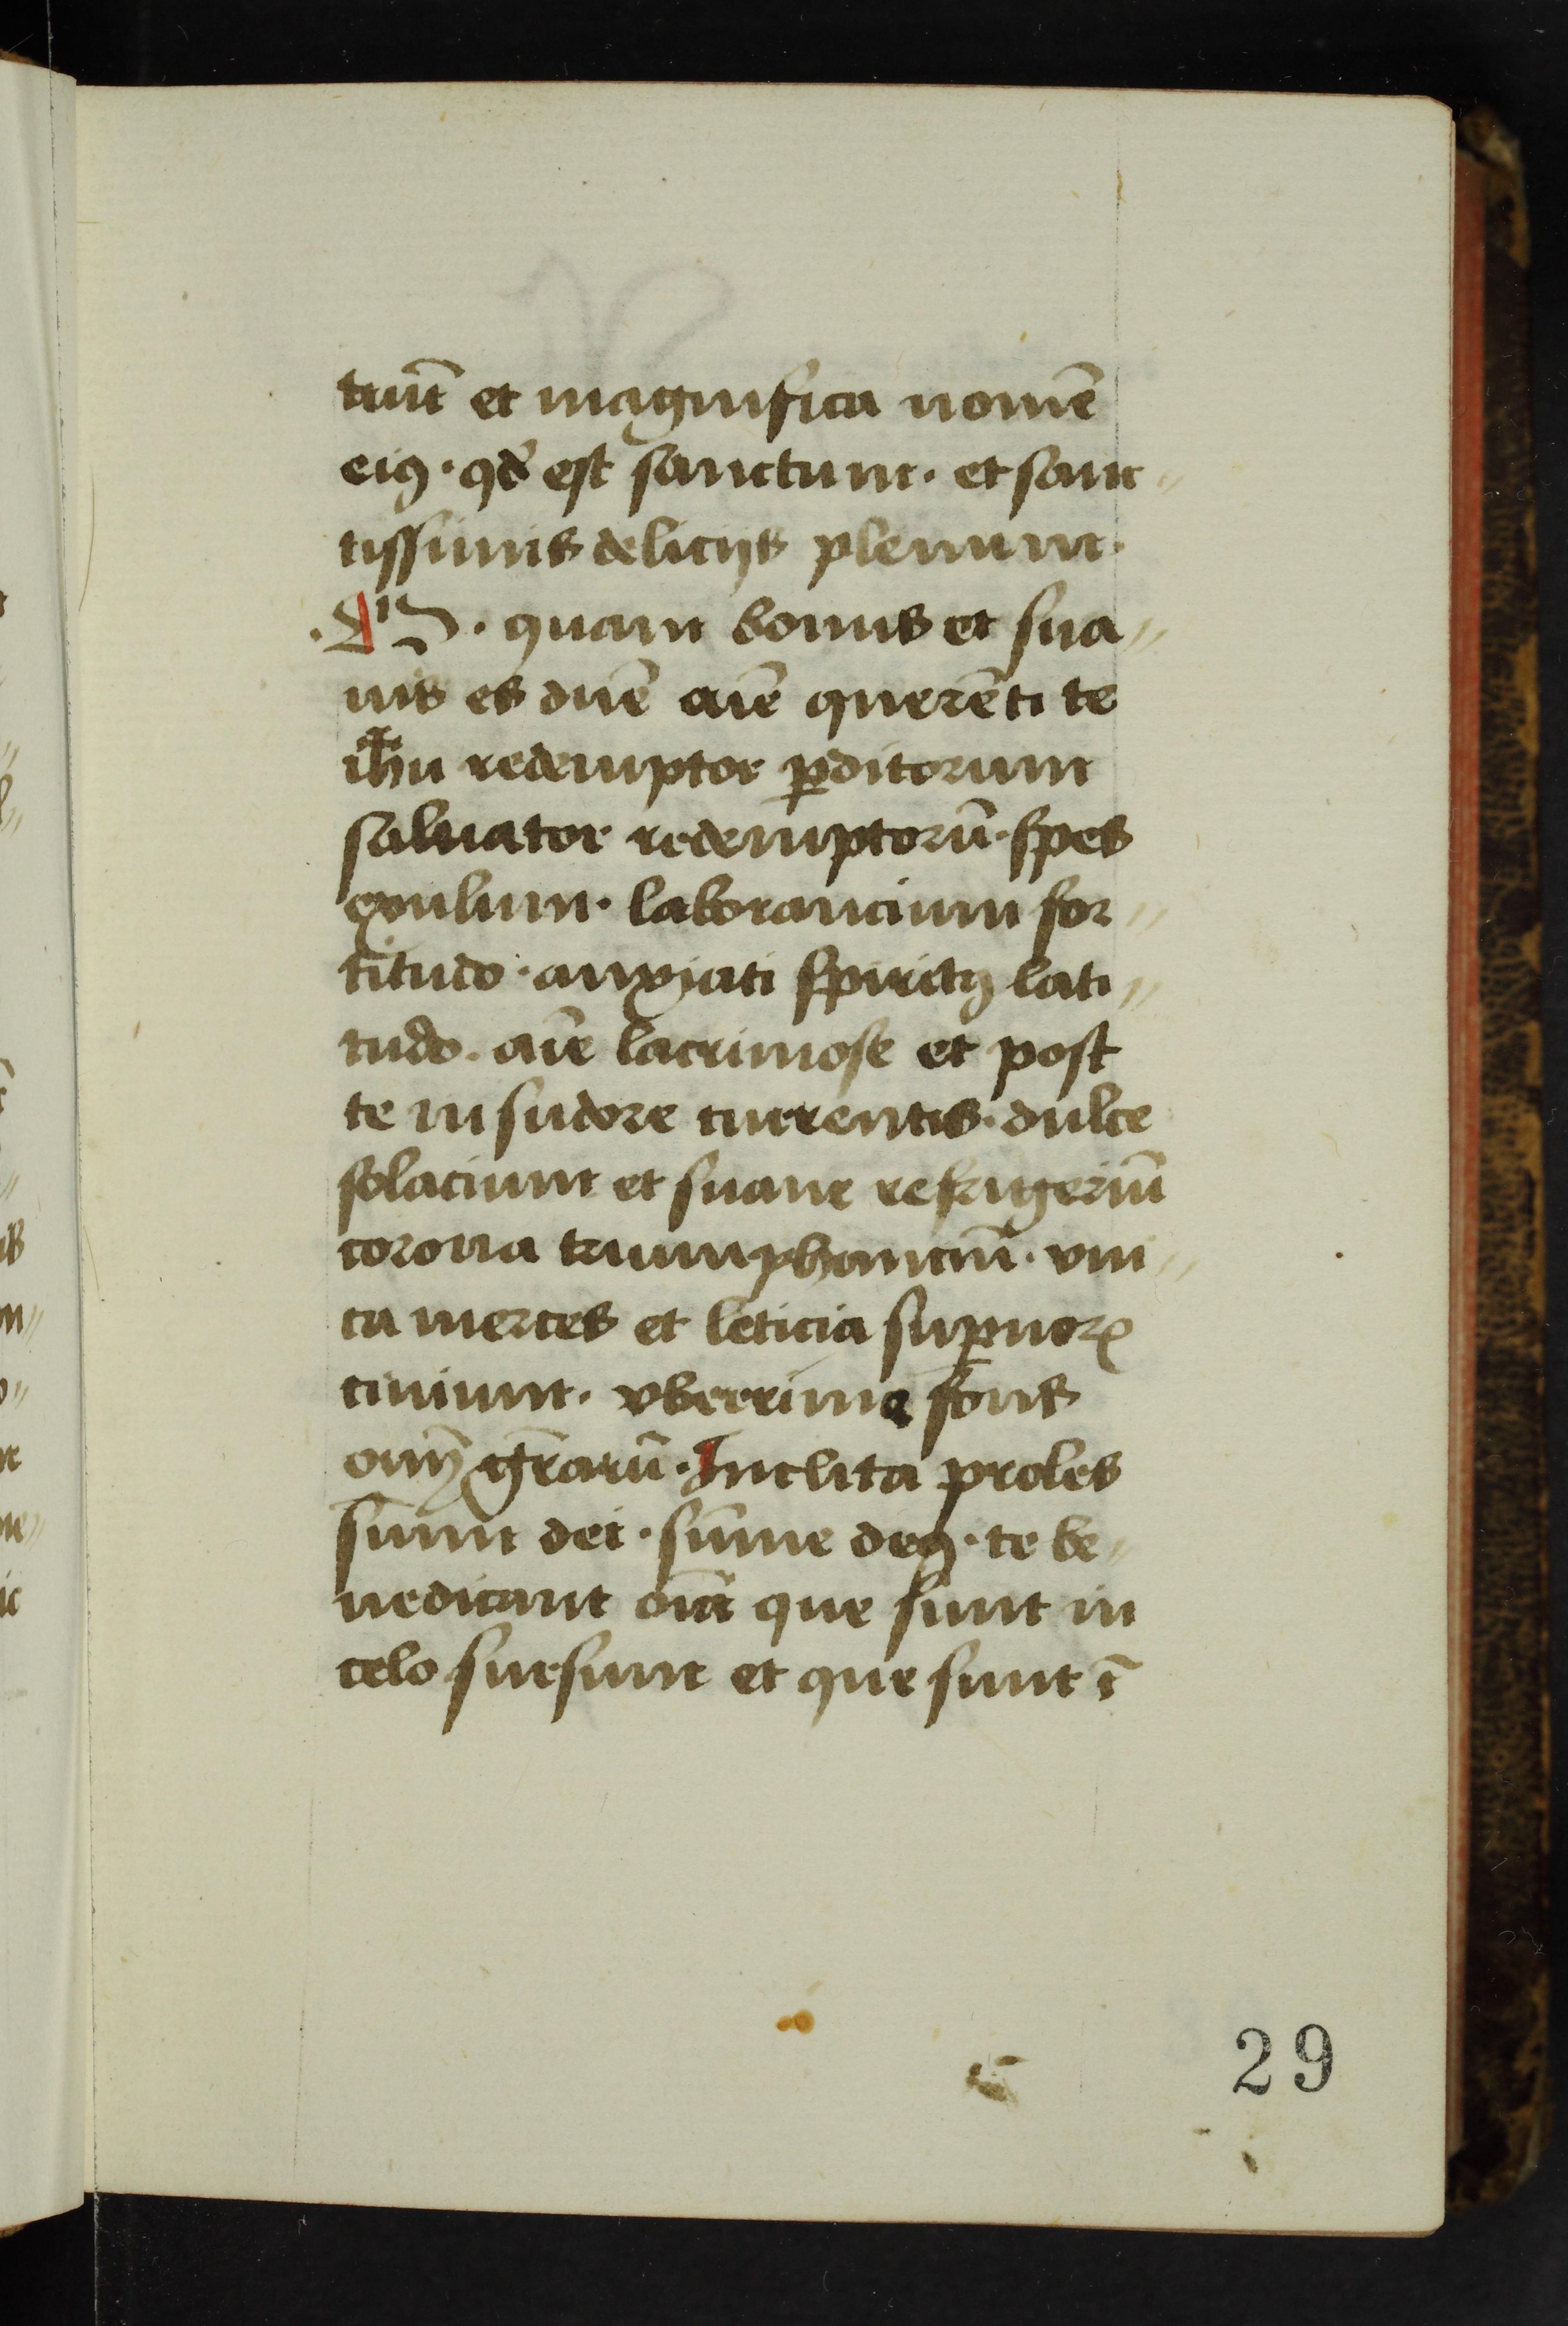 tuū et magnifica nomē
eiꝯ · qd̛ est sanctum · et sanc〃
tissimis delicijs plenum ·
· O · quam bonus et sua〃
uis es dn̄e aīe querēti te
ih̄u redemptor ꝑditorum
saluator redemptorū · spes
exulum · laborancium for〃
titudo · anxiati spiritꝯ lati〃
tudo · aīe lacrimose et post
te in sudore currentis · dulce
solacium et suaue refrigeriū
corona triumphanciū · vni〃
ca merces et leticia suꝑnorꝝ
ciuium · vberrime fons
om̄ gr̄arū · Inclita proles
sum̄i dei · sum̄e deꝯ · te be〃
nedicant oīa que sunt in
celo sursum et que sunt ī
29